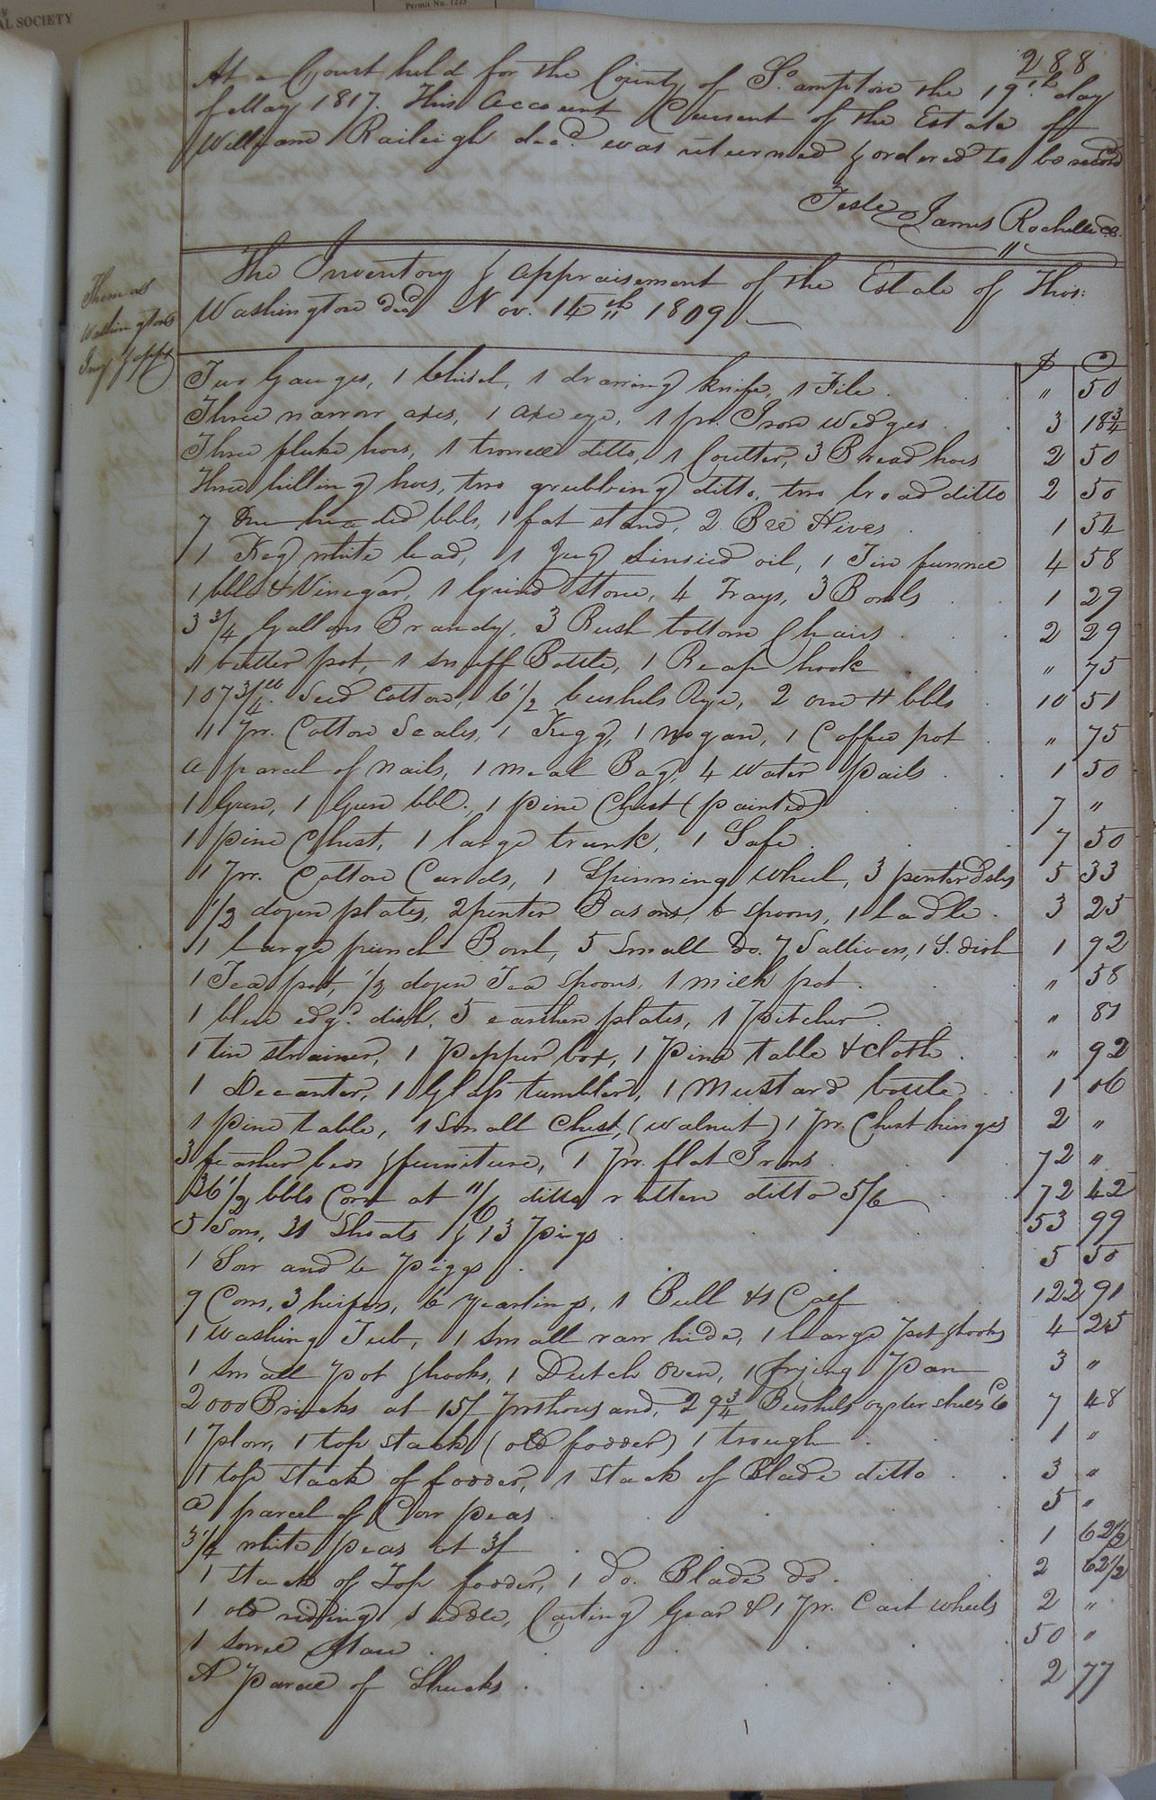 AL SOCIETY
Permit No. 1225
288
At a Court held for the County of So.ampton the 19th. day
of May 1817. This Account Current of the Estate of
William Raileigh decd. was returned & ordered to be record
Teste James Rochelle
Thomas
Washingtons
Invy & appt
The Inventory & appraisement of the Estate of Thos:
Washington decd Nov. 14th 1809
$ C
Two Gauges, 1 Chisel, 1 drawing knife, 1 File " 50
Three narrow axes, 1 axe eye, 1 pr. Iron wedges 3 18 3/4
Three fluke hoes, 1 trowell ditto, 1 Coulter, 3 Broad hoes 2 50
Three hilling hoes, two grubbing ditto, two broad ditto 2 50
7 One headed bbls, 1 fat stand, 2 Bee Hives 1 54
1 Keg white lead, 1 Jug Linseed oil, 1 Tin funnel 4 58
1 bbl & Vinegar, 1 Grind Stone, 4 Trays, 3 Bowls 1 29
3 3/4 Gallons Brandy, 3 Rush bottom Chairs 2 29
1 butter pot, 1 snuff Bottle, 1 Reap hook " 75
107 3/4 lb. Seed Cotton, 6 1/2 bushels Rye, 2 one H bbls 10 51
1 Pr. Cotton Scales, 1 Kegg, 1 nogan, 1 Coffee pot " 75
a parcel of nails, 1 meal Bag, 4 water pails 1 50
1 Gun, 1 Gun bbl., 1 pine Chest (painted) 7 "
1 pine Chest, 1 large trunk, 1 Safe 7 50
1 Pr. Cotton Cards, 1 Spinning wheel, 3 pewter Dshs 5 33
1/2 dozen plates, 2 pewter Basons, 6 spoons, 1 Ladle 3 25
1 Large punch Bowl, 5 Small do. 7 Sallivers, 1 S. dish 1 92
1 Tea pot, 1/2 dozen Tea Spoons, 1 milk pot " 58
1 blue edgd. dish, 5 earthen plates, 1 Pitcher " 87
1 tin strainer, 1 Pepper box, 1 Pine table & cloth " 92
1 Decanter, 1 Glass tumbler, 1 Mustard bottle 1 06
1 pine table, 1 Small Chest, (walnut) 1 Pr. Chest hinges 2 "
3 feather beds & furniture, 1 Pr. flat Irons 72 "
36 1/2 bbls Corn at 11/6 ditto rotten ditto 5/6 72 42
5 Sows, 31 Shoats & 13 Pigs 53 99
1 Sow and 6 Piggs 5 50
9 Cows, 3 heifers, 6 yearlings, 1 Bull & 1 Calf 122 91
1 Washing Tub, 1 small raw hide, 1 Large Pot & hooks 4 25
1 small pot & hooks, 1 Dutch Oven, 1 frying Pan 3 "
2000 Bricks at 15/ Pr thousand, 29 3/4 Bushels oyster shells 7 48
1 Plow, 1 top stack (old fodder) 1 trough 1 "
1 top stack of fodder, 1 stack of Blade ditto 3 "
a parcel of Cow peas 5 "
3 1/4 white peas at 3/ 1 62 1/2
1 stack of Top fodder, 1 do. Blade do. 2 62 1/2
1 old riding saddle, Carting Gear & 1 Pr. Cart wheels 2 "
1 Sorrel Mare 50 "
A Parcel of Shucks 2 77